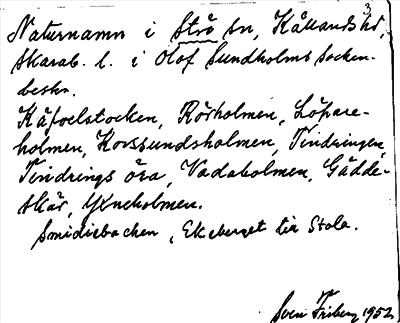 3.
Naturnamn i Strö sn, Kållands hd,
Skarab. l. i Olof Sundholms socken-
beskr.
Kåfoelstocken, Rörholmen, Löpare-
holmen, Korssundsholmen, Tindringen,
Tindrings öra, Vadaholmen, Gädde-
skär, Yxneholmen.
Smidiebacken, Ekeberget tir Stola.
Sven Friberg 1952